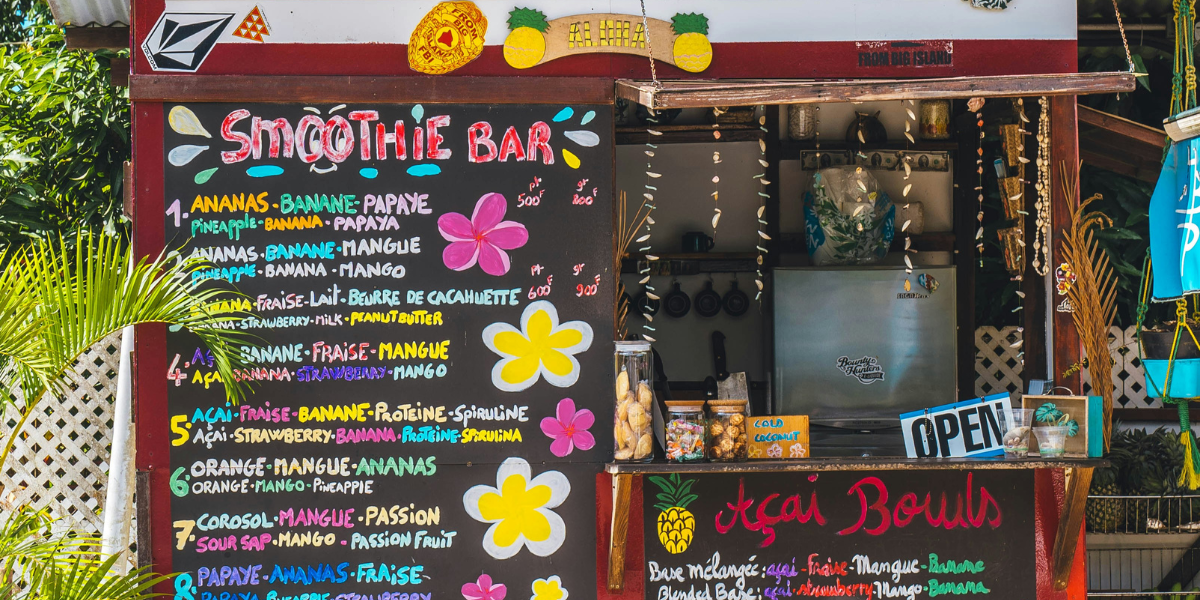 ALOHA
FROM BIG ISLAND
SMOOTHIE BAR
pt gr
500F 800F
1. ANANAS - BANANE - PAPAYE
Pineapple - BANANA - PAPAYA
ANANAS - BANANE - MANGUE
PINEAPPLE - BANANA - MANGO
pt gr
600F 900F
FRAISE - LAIT - BEURRE DE CACAHUETTE
STRAWBERRY - MILK - PEANUT BUTTER
4. BANANE - FRAISE - MANGUE
AÇAI BANANA - STRAWBERRY - MANGO
5. AÇAI - FRAISE - BANANE - PROTEINE - SPIRULINE
AÇAI - STRAWBERRY - BANANA - PROTEINE - SPIRULINA
6. ORANGE - MANGUE - ANANAS
ORANGE - MANGO - PINEAPPLE
7. COROSOL - MANGUE - PASSION
SOUR SAP - MANGO - PASSION FRUIT
8. PAPAYE - ANANAS - FRAISE
PAPAYA PINEAPPLE STRAWBERRY
Bounty Hunters
COLD
COCONUT
OPEN
Açai Bowls
Base mélangée: açai - Fraise - Mangue - Banane
Blended Base: açai - strawberry - Mango - Banana